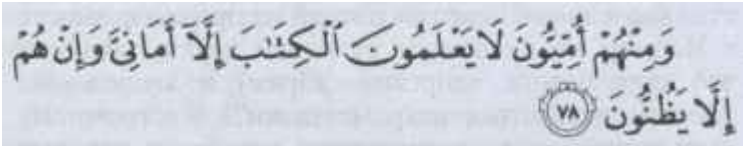 وَمِنْهُمْ أُمِّيُّونَ لَا يَعْلَمُونَ ٱلْكِتَٰبَ إِلَّآ أَمَانِيَّ وَإِنْ هُمْ
إِلَّا يَظُنُّونَ ٧٨